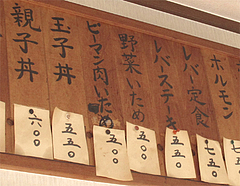 ホルモン
七五
レバー定食
七五〇
レバステーキ
五五〇
野菜いため
五五〇
ピーマン肉いため
五五〇
玉子丼
五五〇
親子丼
六〇〇